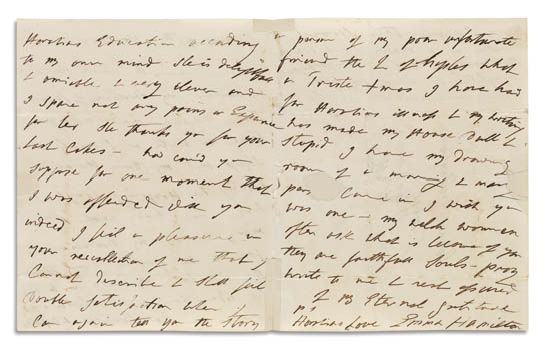 Horatias Education according
to my own mind she is delightful
& amiable & very clever and
I spare not any pains or Expence
for her she thanks you for your
last Cakes - how could you
suppose for one moment that
I was offended with you
indeed I feel a pleasure in
your recollection of me that I
Cannot describe & shall feel
double satisfaction when I
Can again tell you the Story
a person of my poor unfortunate
friend the of Naples what
a Triste Xmas I have had
for Horatias illness & my
has made my House dull &
Stupid I have my drawing
room of a morning & many
Come in I wish you
was one - my welch women
often ask what is become of you
they are faithfull Souls - pray
write to me & rest assured
of my Eternal gratitude
Horatias Love Emma Hamilton